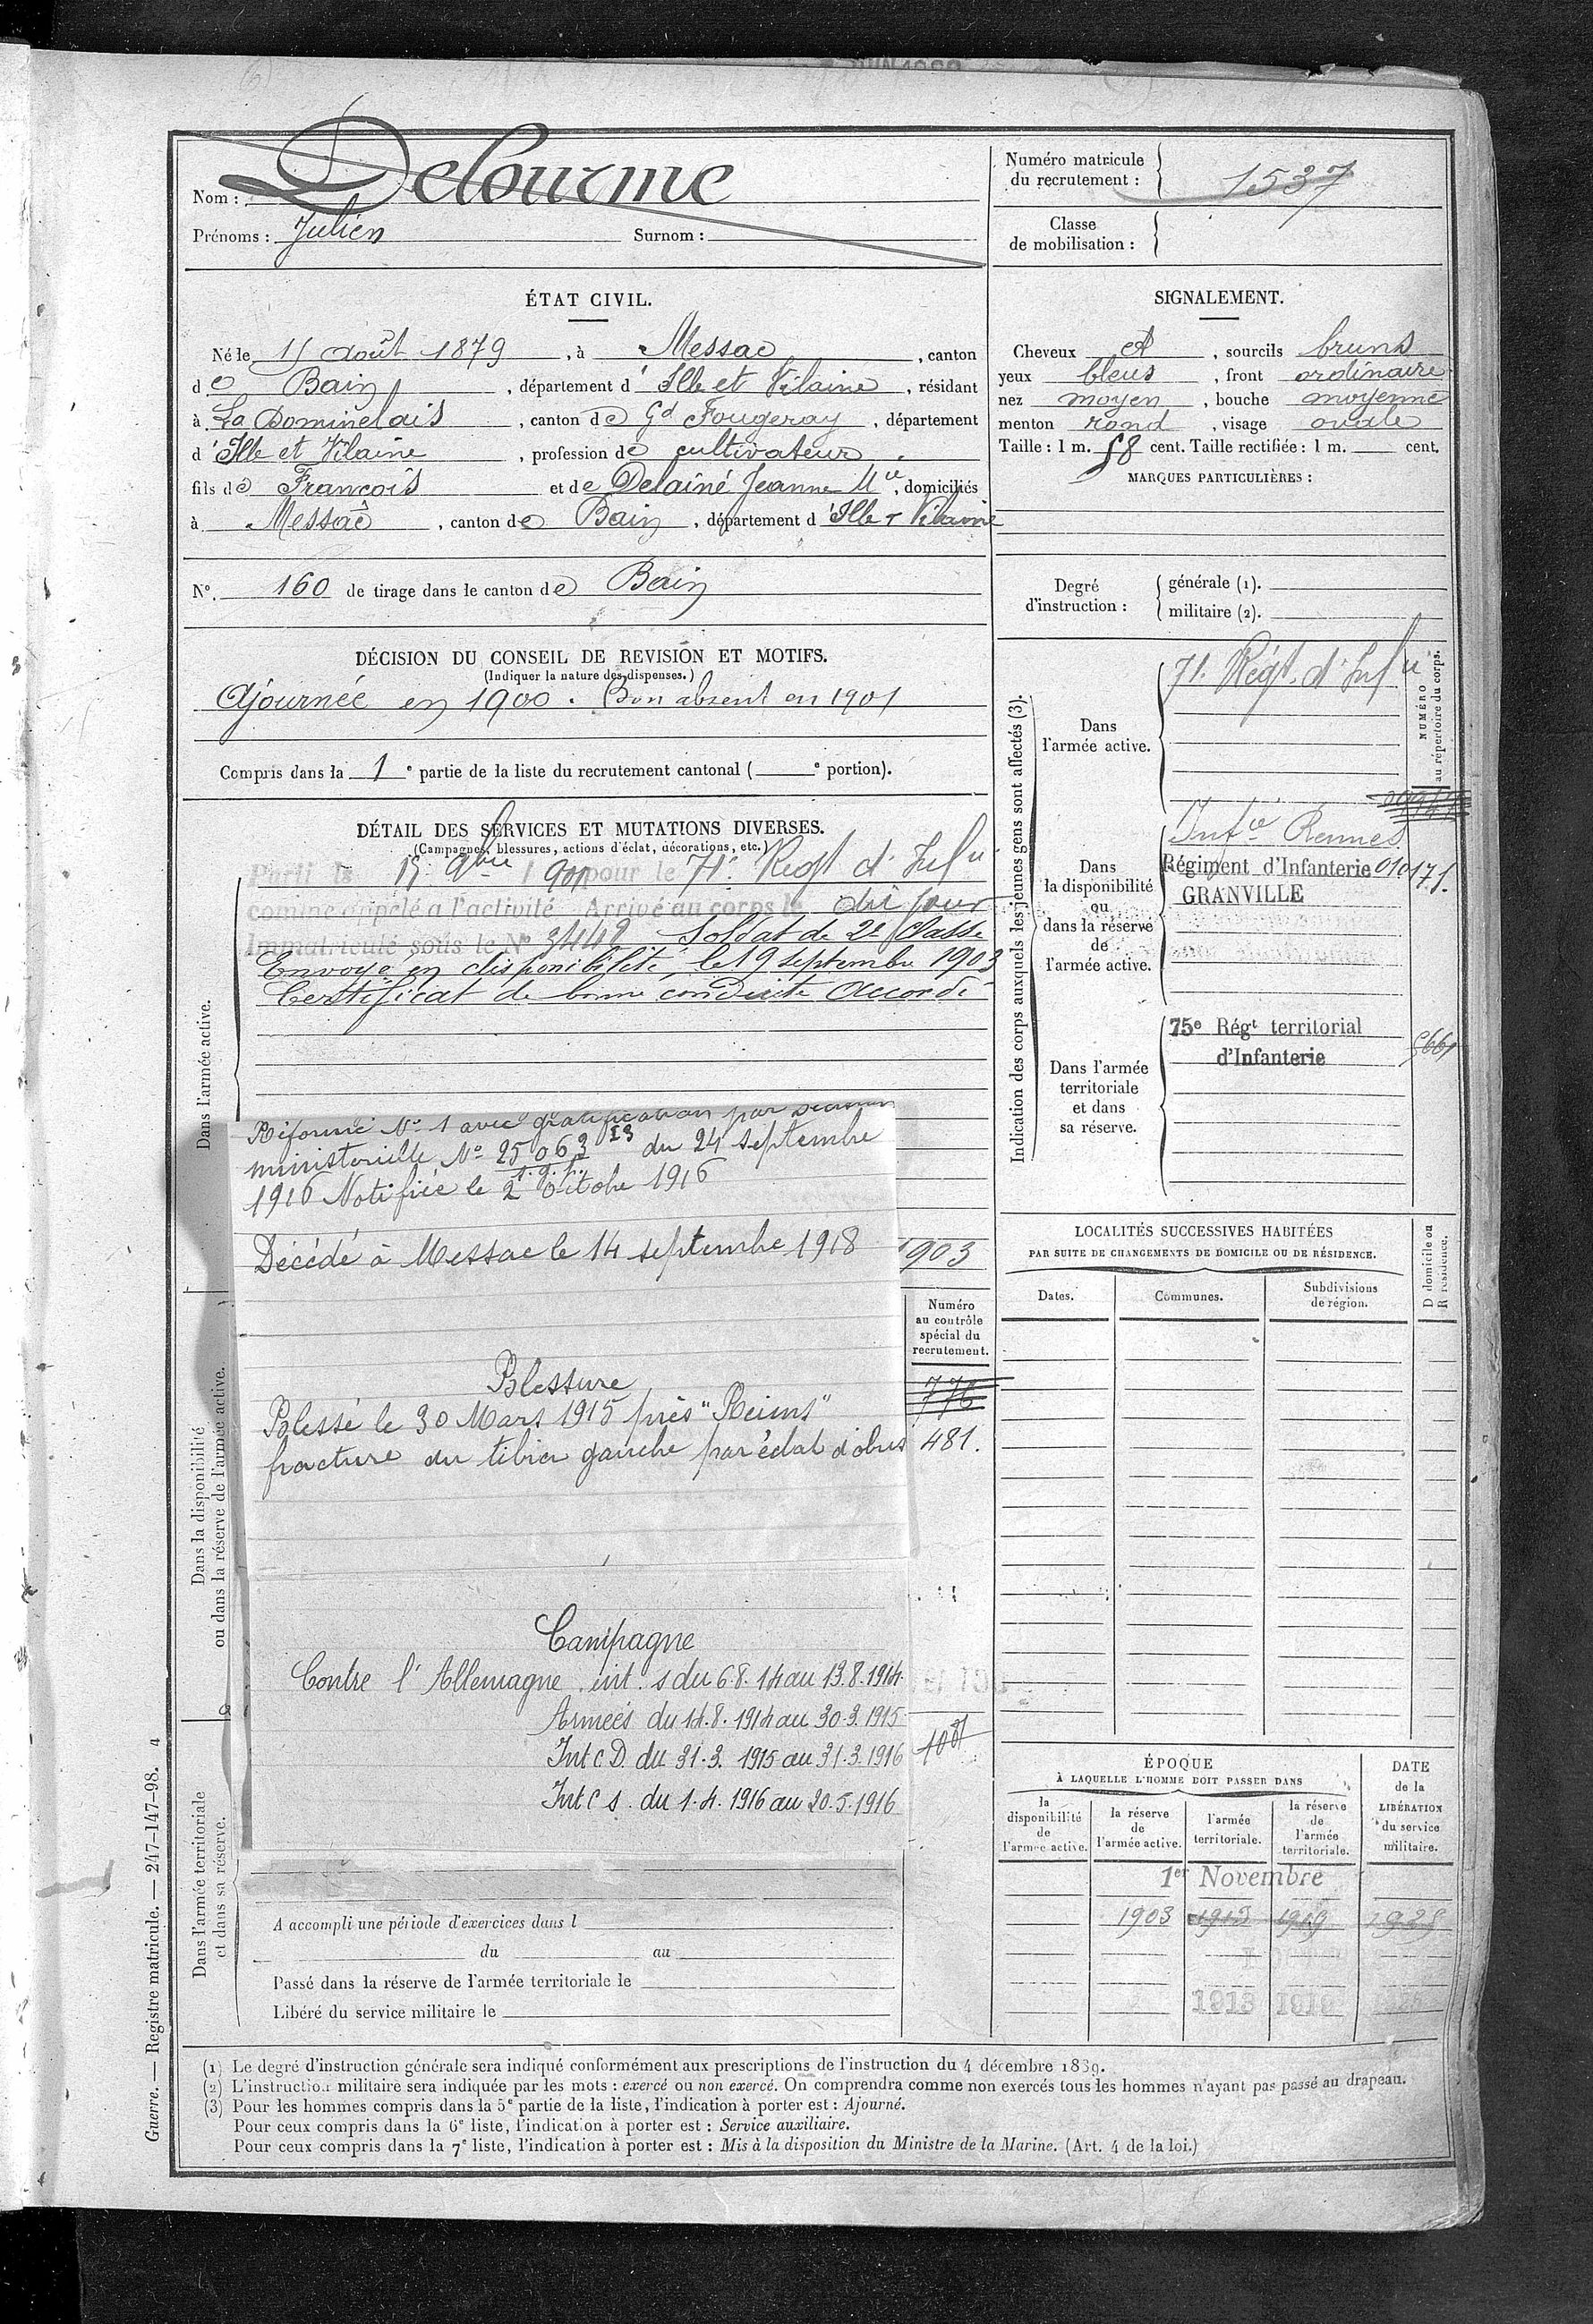 Nom : Delourme
Prénoms : Julien Surnom :
Numéro matricule du recrutement : 1537
Classe de mobilisation :
ÉTAT CIVIL.
Né le août 1879, à Messac, canton
de Bain, département d'Ille et Vilaine, résidant
à La Dominelais, canton de Gd Fougeray, département
d'Ille et Vilaine, profession de cultivateur
fils de François et de Delainé Jeanne Mie, domiciliés
à Messac, canton de Bain, département d'Ille & Vilaine
No. 160 de tirage dans le canton de Bain
SIGNALEMENT.
Cheveux et, sourcils bruns
yeux bleus, front ordinaire
nez moyen, bouche moyenne
menton rond, visage ovale
Taille : 1 m. 58 cent. Taille rectifiée : 1 m. cent.
MARQUES PARTICULIÈRES :
Degré d'instruction : générale (1).
militaire (2).
DÉCISION DU CONSEIL DE REVISION ET MOTIFS.
(Indiquer la nature des dispenses.)
Ajournée en 1900. Bon absent en 1901
Compris dans la 1e partie de la liste du recrutement cantonal ( e portion).
DÉTAIL DES SERVICES ET MUTATIONS DIVERSES.
(Campagnes, blessures, actions d'éclat, décorations, etc.)
Parti le 15 9bre 1901 pour le 71e Regt d'Infie
comme appelé a l'activité Arrivé au corps le dit jour
Immatriculé sous le No 3448 Soldat de 2e Classe
Envoyé en disponibilité le 19 septembre 1903
Certificat de bonne conduite Accordé
Dans l'armée active.
Réformé No 1 avec gratification par décision
ministérielle No 25063 I3 du 24 septembre
1916 Notifiée le 2 octobre 1916
Décédé à Messac le 14 septembre 1918
1903
Numéro
au contrôle
spécial du
recrutement.
776
481.
Blessure
Blessé le 30 Mars 1915 près "Reims"
fracture du tibia gauche par éclat d'obus
Dans la disponibilité
ou dans la réserve de l'armée active.
Campagne
Contre l'Allemagne int. s du 6.8.14 au 13.8.1914.
Armées du 14.8.1914 au 30.3.1915
Int C D. du 31.3.1915 au 31.3.1916
Int C s. du 1.4.1916 au 20.5.1916
Dans l'armée territoriale
et dans sa réserve.
A accompli une période d'exercices dans l
du au
Passé dans la réserve de l'armée territoriale le
Libéré du service militaire le
Indication des corps auxquels les jeunes gens sont affectés (3).
NUMÉRO
au répertoire du corps.
Dans
l'armée active.
71e Régt. d'Infie
Dans
la disponibilité
ou
dans la réserve
de
l'armée active.
Infie Rennes
Régiment d'Infanterie 010171.
GRANVILLE
Dans l'armée
territoriale
et dans
sa réserve.
75e Régt territorial
d'Infanterie
5661
LOCALITÉS SUCCESSIVES HABITÉES
PAR SUITE DE CHANGEMENTS DE DOMICILE OU DE RÉSIDENCE.
D domicile ou
R résidence.
Dates. Communes. Subdivisions de région.
ÉPOQUE
À LAQUELLE L'HOMME DOIT PASSER DANS
la disponibilité de l'armée active.
la réserve de l'armée active.
l'armée territoriale.
la réserve de l'armée territoriale.
DATE de la LIBÉRATION du service militaire.
1er Novembre
1903 1913 1919
1913 1919
(1) Le degré d'instruction générale sera indiqué conformément aux prescriptions de l'instruction du 4 décembre 1889.
(2) L'instruction militaire sera indiquée par les mots : exercé ou non exercé. On comprendra comme non exercés tous les hommes n'ayant pas passé au drapeau.
(3) Pour les hommes compris dans la 5e partie de la liste, l'indication à porter est : Ajourné.
Pour ceux compris dans la 6e liste, l'indication à porter est : Service auxiliaire.
Pour ceux compris dans la 7e liste, l'indication à porter est : Mis à la disposition du Ministre de la Marine. (Art. 4 de la loi.)
Guerre. — Registre matricule. — 247-147-98. 4